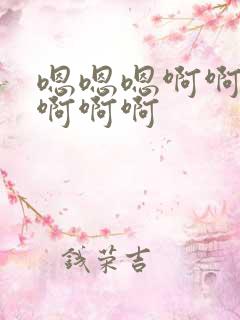 嗯嗯嗯啊啊
啊啊啊
钱荣吉